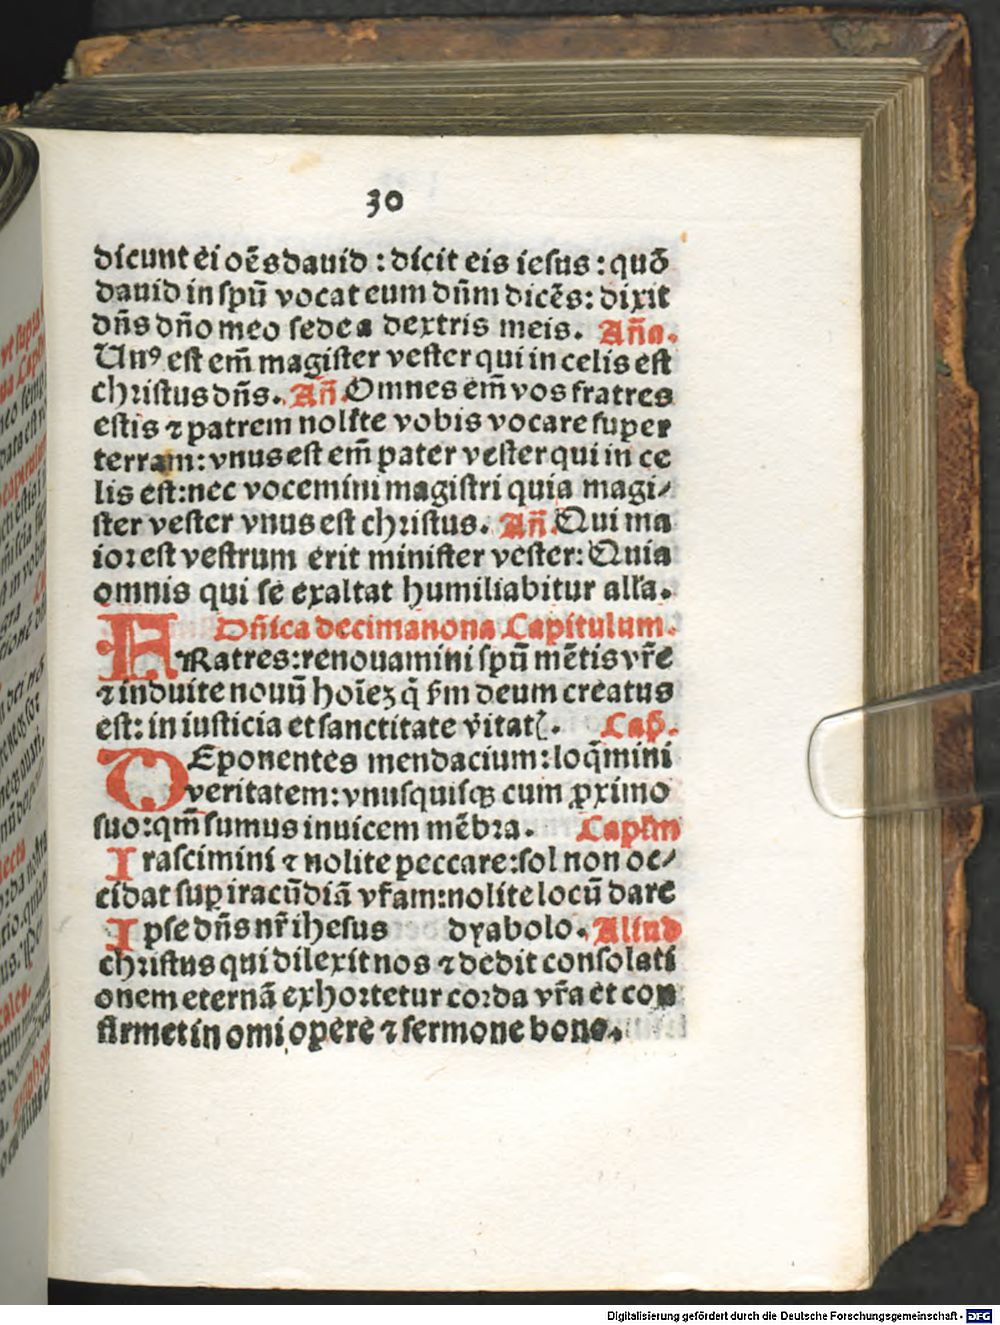 30
dicunt ei oēs dauid : dicit eis iesus : quō
dauid in spū vocat eum dñm dicēs: dixit
dñs dño meo sede a dextris meis. Aña.
Unꝰ est em̄ magister vester qui in celis est
christus dñs. Añ. Omnes em̄ vos fratres
estis ⁊ patrem nolite vobis vocare super
terram: vnus est em̄ pater vester qui in ce
lis est: nec vocemini magistri quia magi⸗
ster vester vnus est christus. Añ. Qui ma
ior est vestrum erit minister vester: Quia
omnis qui se exaltat humiliabitur alľa.
Dñica decimanona Capitulum.
Fratres: renouamini spū mētis vr̄e
⁊ induite nouū hoīeꝫ q̄ ẜm deum creatus
est: in iusticia et sanctitate v̄itatꝭ. Cap̄.
Deponentes mendacium: loq̄mini
veritatem: vnusquisqꝫ cum ꝓximo
suo: qm̄ sumus inuicem mēbra. Capľm
Irascimini ⁊ nolite peccare: sol non oc⸗
cidat suꝑ iracūdiā vr̄am: nolite locū dare
Ipse dñs nr̄ ihesus dyabolo. Aliud
christus qui dilexit nos ⁊ dedit consolati
onem eternā exhortetur corda vr̄a et con
firmet in omi opere ⁊ sermone bono.
Digitalisierung gefördert durch die Deutsche Forschungsgemeinschaft - DFG